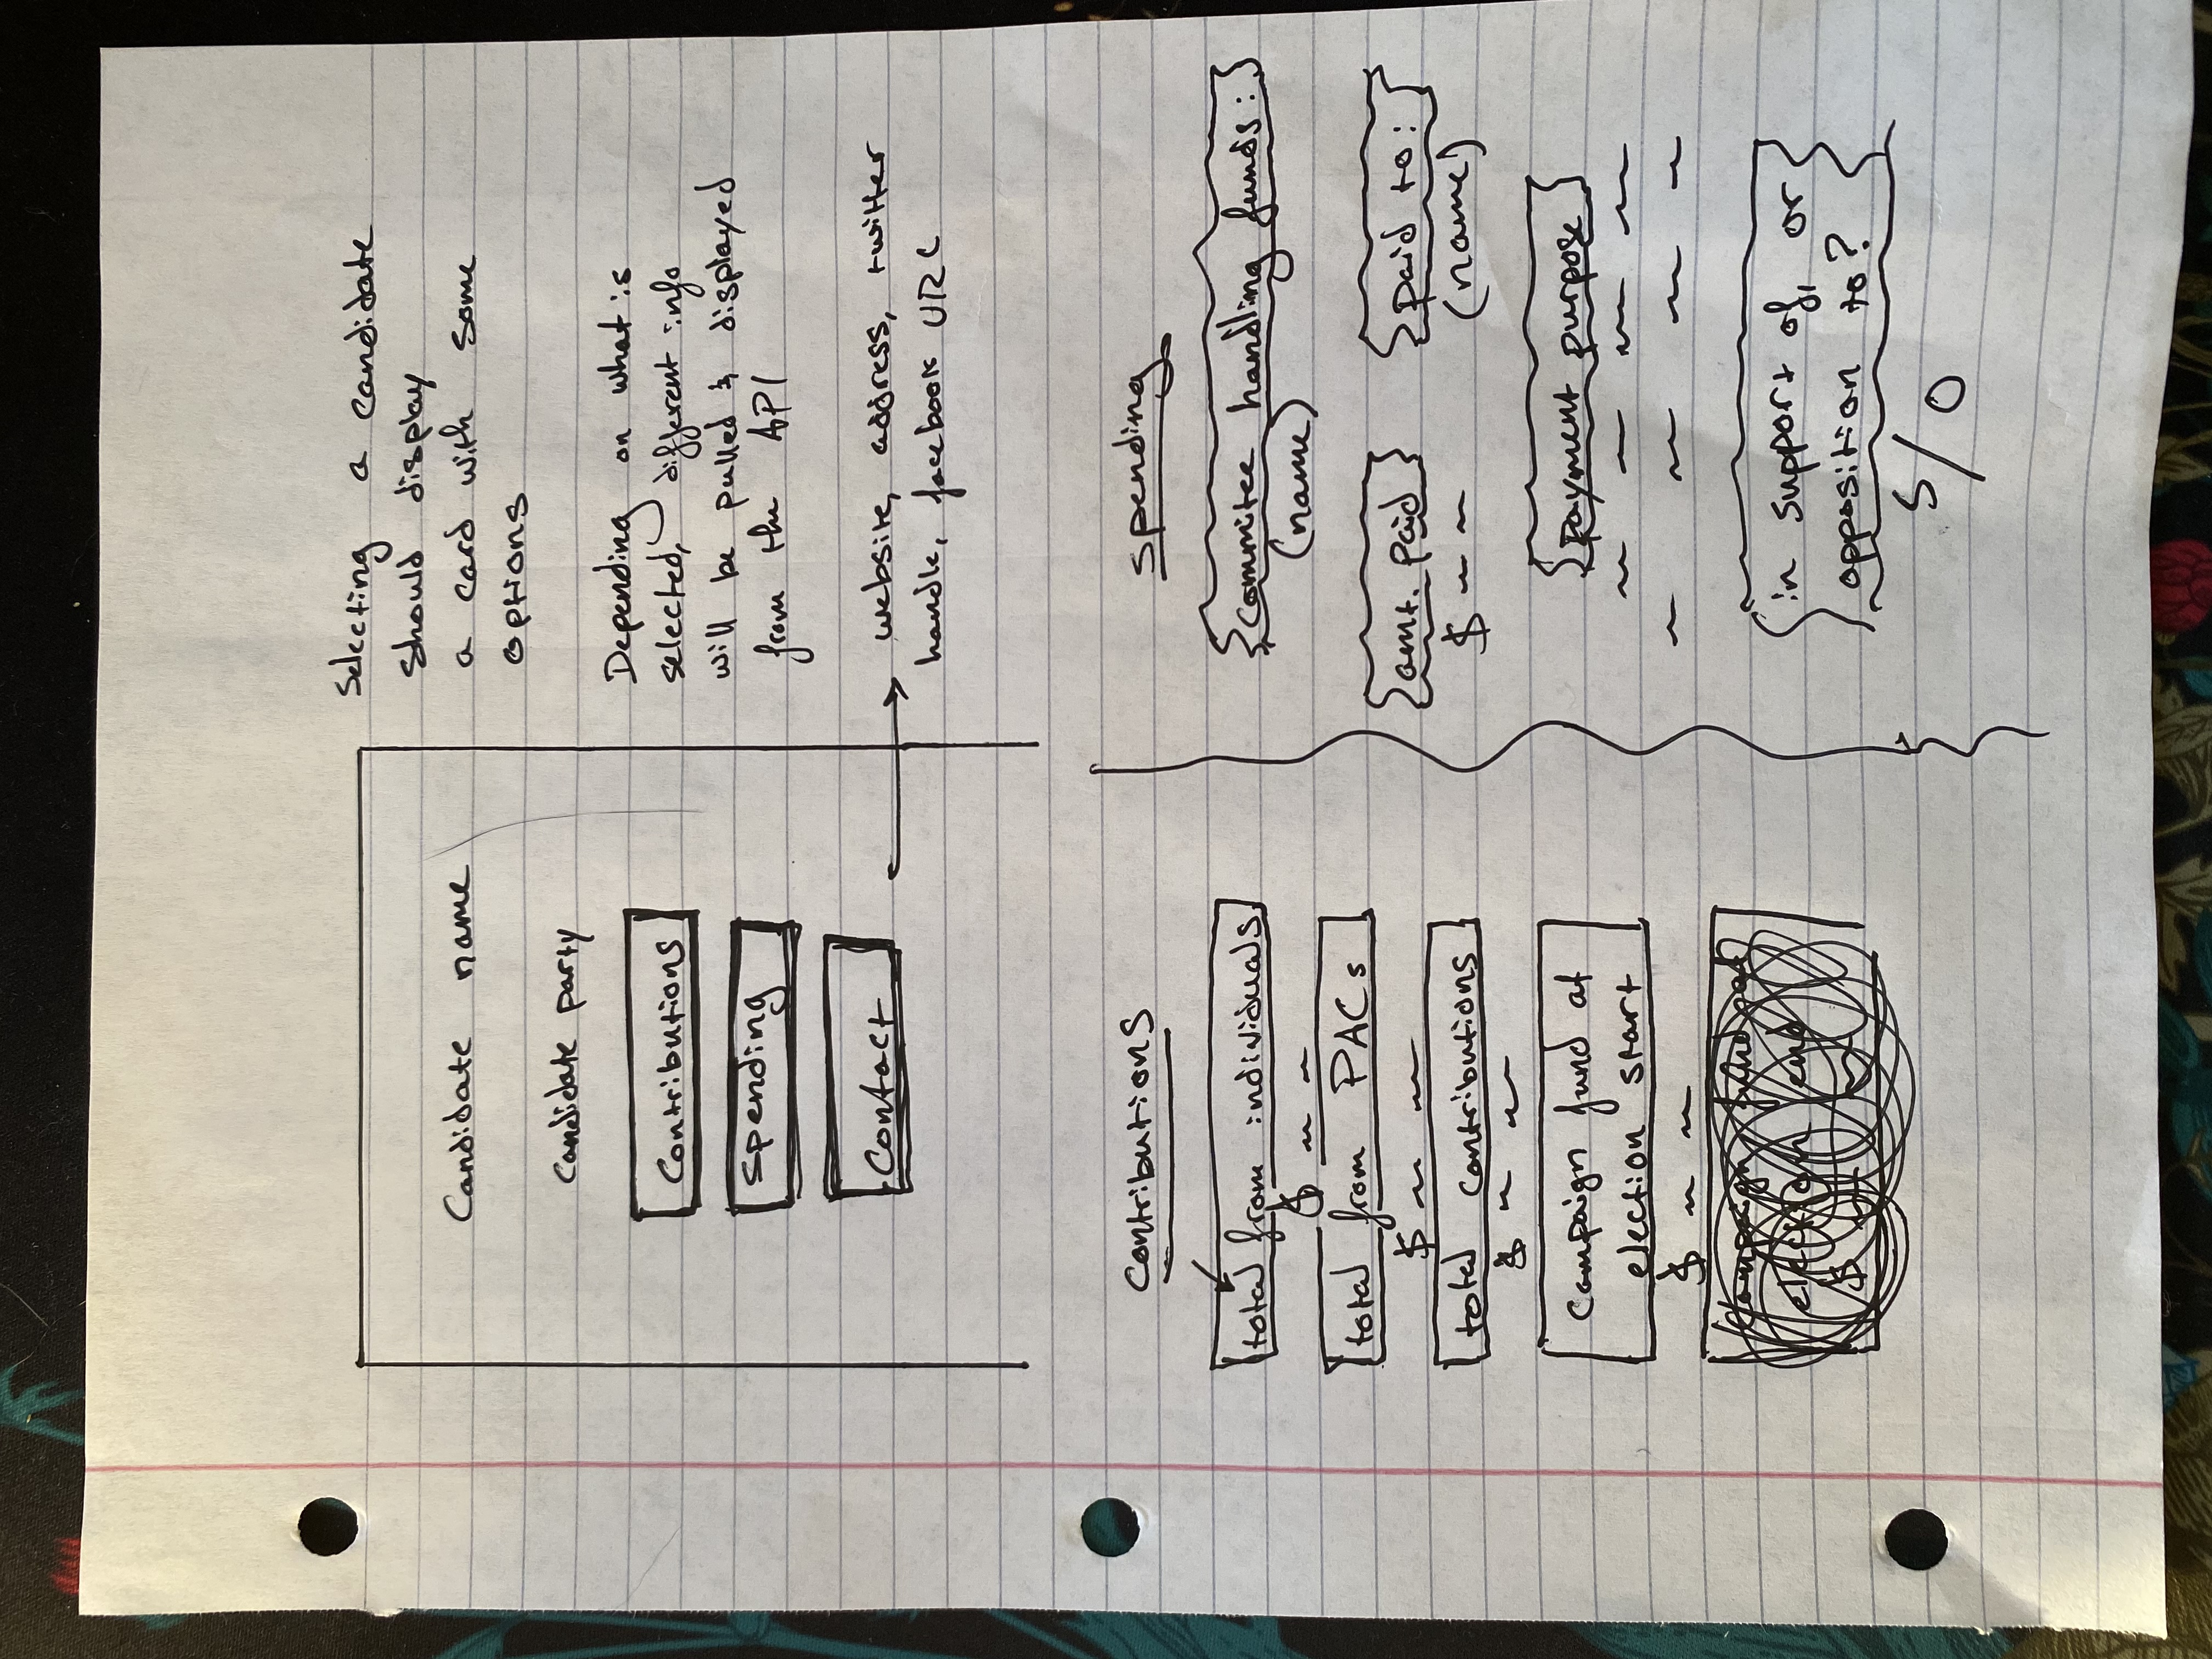 Candidate name
Candidate party
Contributions
Spending
Contact
Selecting a candidate
should display
a card with some
options
Depending on what is
selected, different info
will be pulled & displayed
from the API
website, address, twitter
handle, facebook URL
Contributions
total from individuals
$
total from PACs
$
total contributions
$
Campaign fund at
election start
$
election end
$
Spending
{Commitee handling funds:}
(name)
{amt. paid}
$
{Paid to:}
(name)
{Payment purpose}
{in support of, or
opposition to?}
S/O